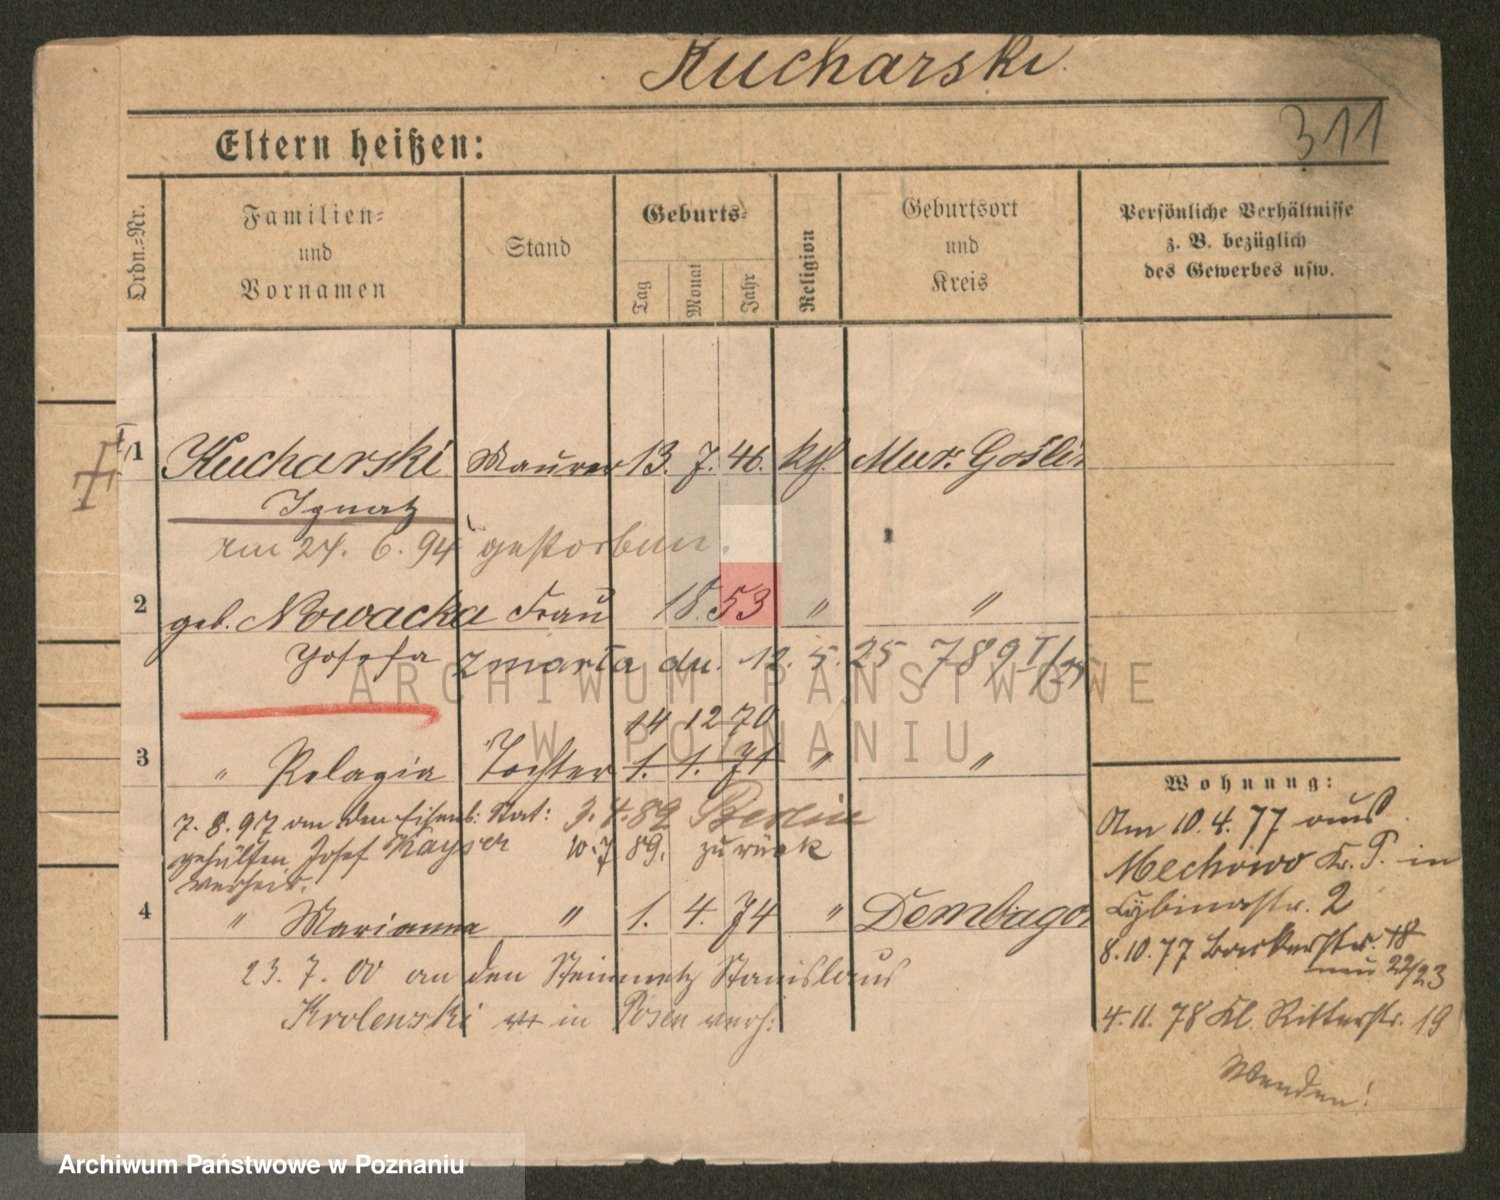 Kucharski.
311
Eltern heißen:
Ordn.-Nr.
Familien-
und
Vornamen
Stand
Geburts-
Tag
Monat
Jahr
Religion
Geburtsort
und
Kreis
Persönliche Verhältnisse
z. B. bezüglich
des Gewerbes usw.
1 Kucharski Maurer 13. 7. 46. kth. Mur. Goślin
Ignatz
am 24. 6. 94 gestorben.
2 geb. Nowacka Frau 18.53 " "
Josefa zmarła dn. 12. 5. 25 789 I/25
14 12 70
3 " Pelagia Tochter 1. 1. 71 " "
7. 8. 97 an den Eisenb: Stat: 3. 4. 89 Berlin
gehülfen Josef Kayser 10. 7 89. zurück
verheir.
4 " Marianna " 1. 4. 74 " Dembogora
23. 7. 00 an den Steinmetz Stanislaus
Krolenski in Posen verh:
Wohnung:
Am 10. 4. 77 aus
Mechowo Kr. P. in
Cybinastr. 2
8. 10. 77 Bäckerstr. 18
neu 22/23
4. 11. 78 Kl. Ritterstr. 19
Wenden!
ARCHIWUM PAŃSTWOWE
W POZNANIU
Archiwum Państwowe w Poznaniu